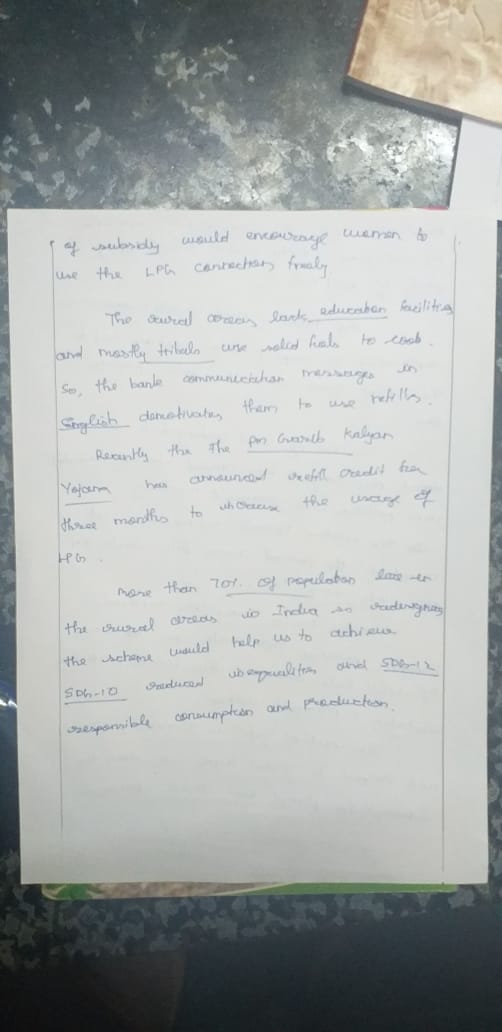 of subsidy would encourage women to
use the LPG connections freely
The rural areas lack education facilities
and mostly tribals use solid fuels to cook.
So, the bank communication messages in
English demotivates them to use refills.
Recently the The PM Gharib Kalyan
Yojana has announced refill credit for
three months to increase the usage of
LPG.
More than 70% of population live in
the rural areas in India so redesigning
the scheme would help us to achieve
SDG-10 reduced inequalities and SDG-12
responsible consumption and production.